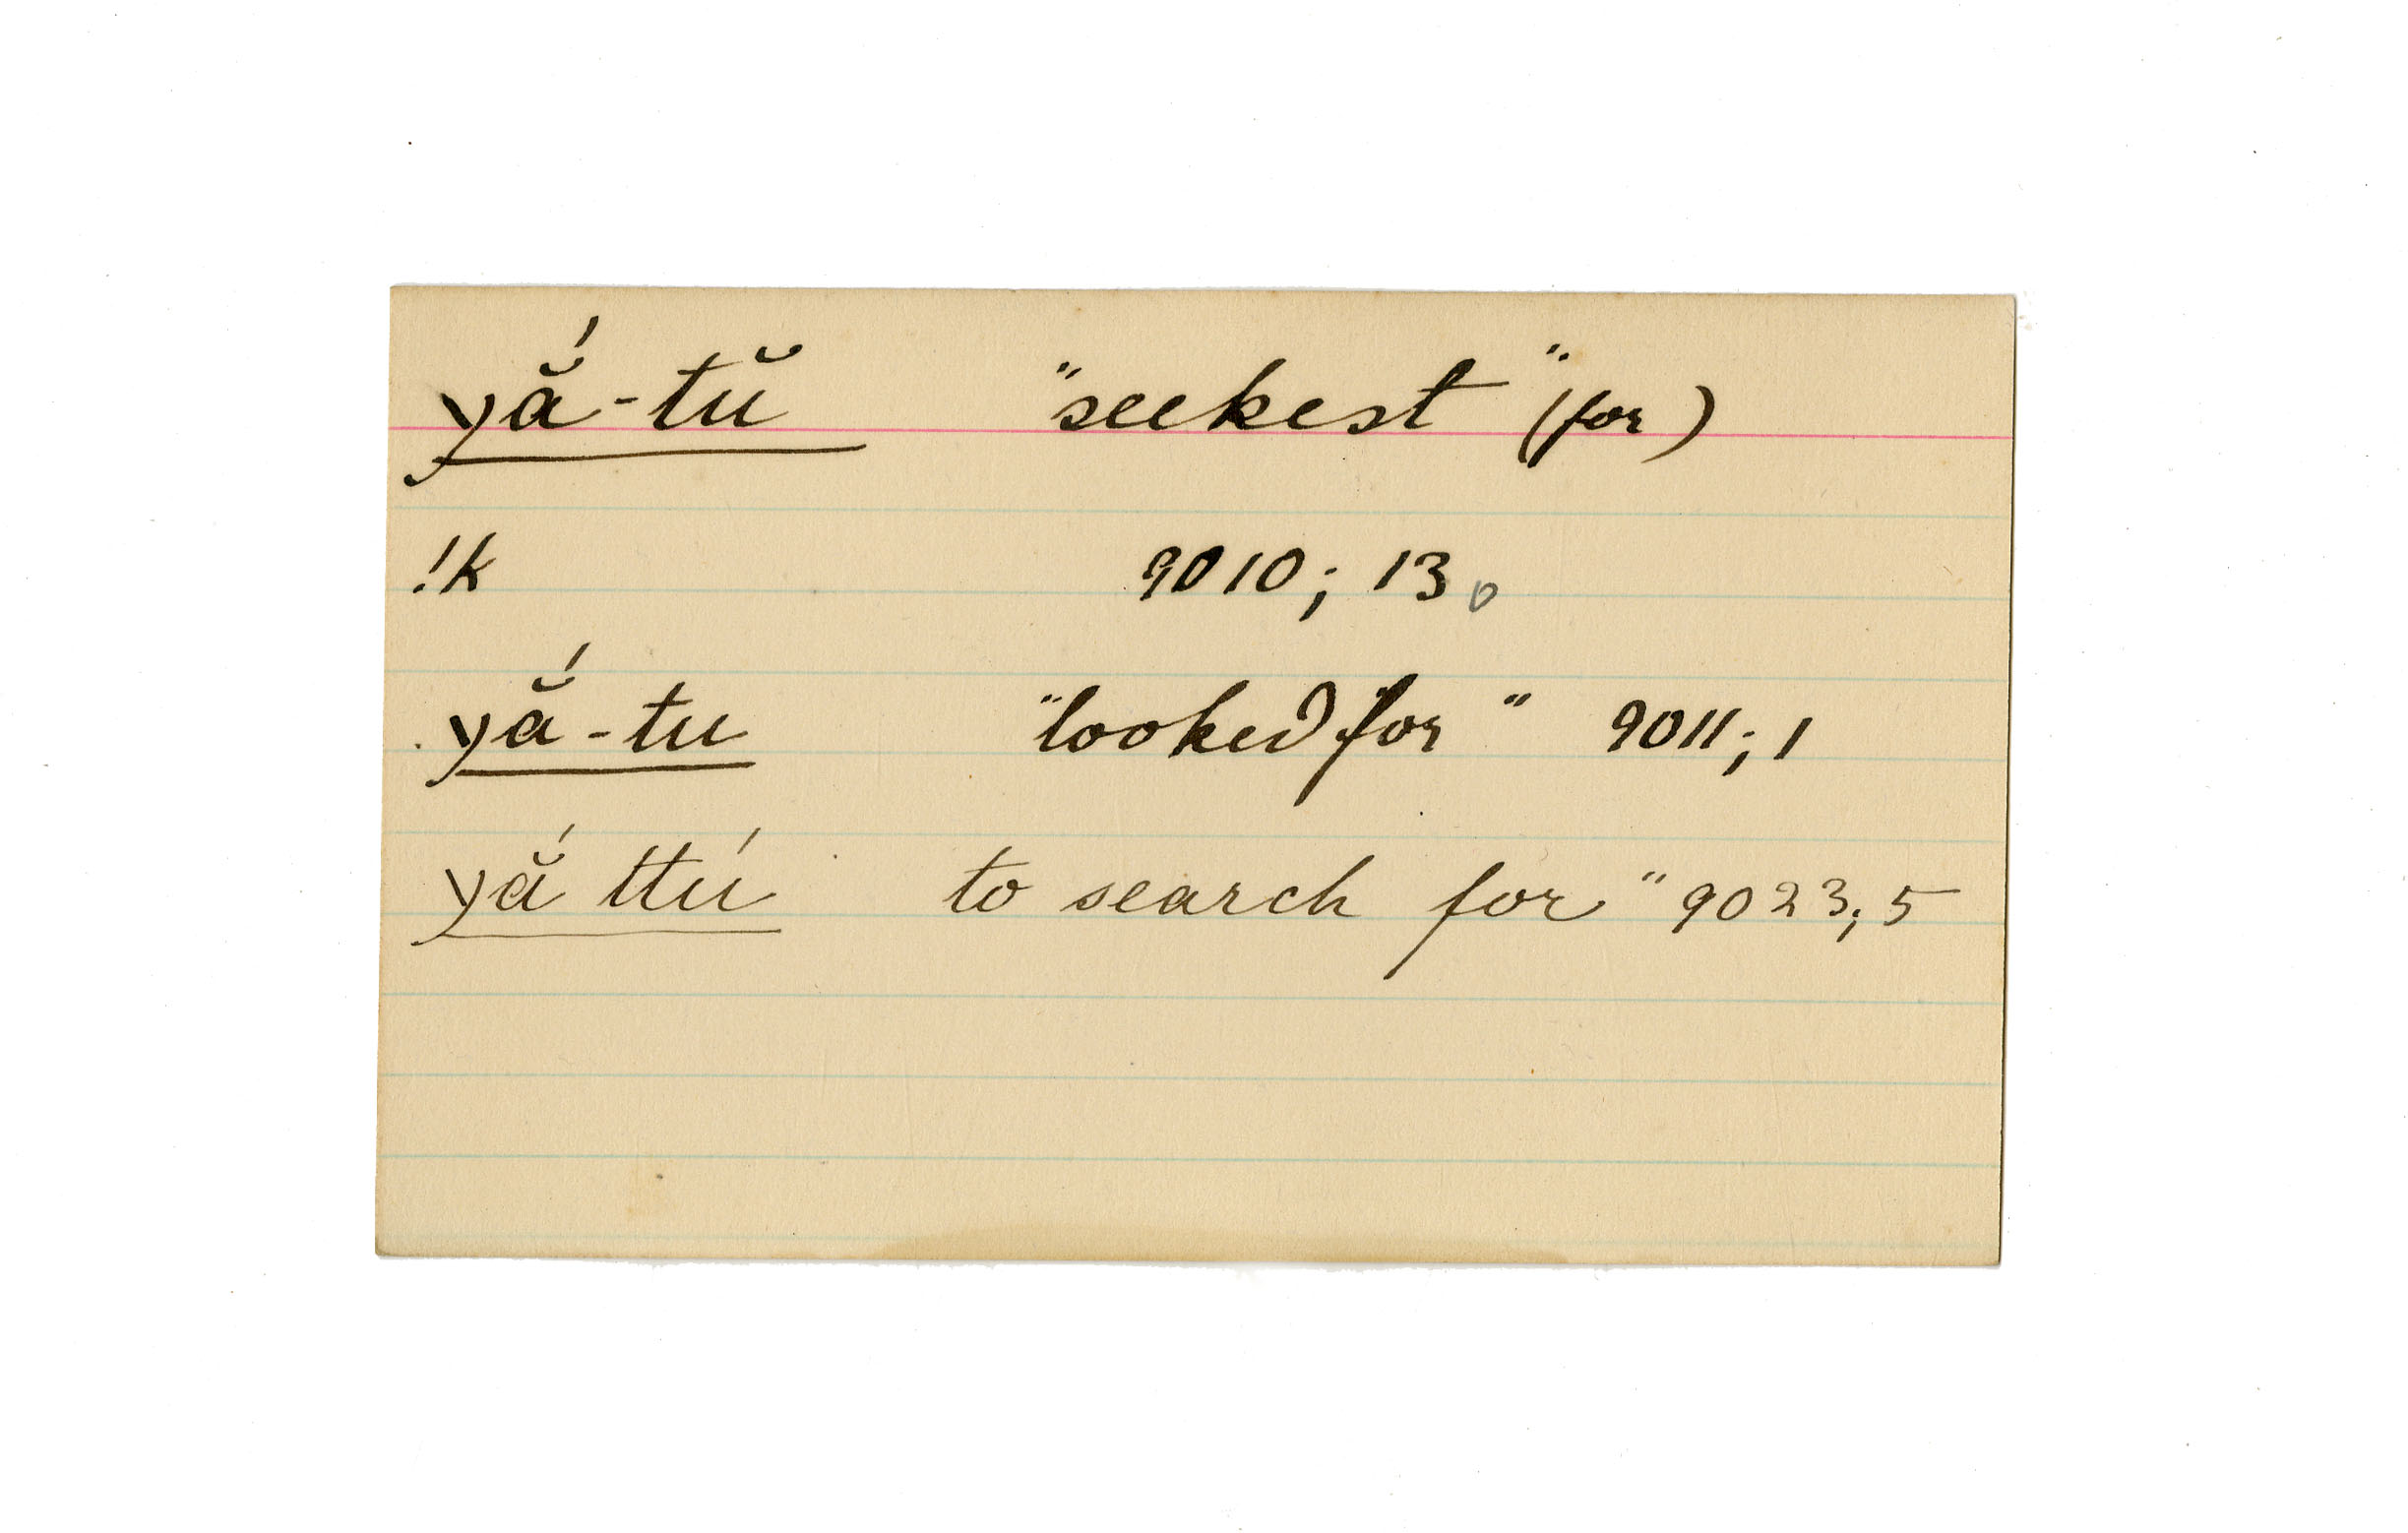 yắ-tŭ "seekest" (for)
!k 9010; 13
yắ-tu "looked for" 9011; 1
yắ ttú to search for" 9023; 5